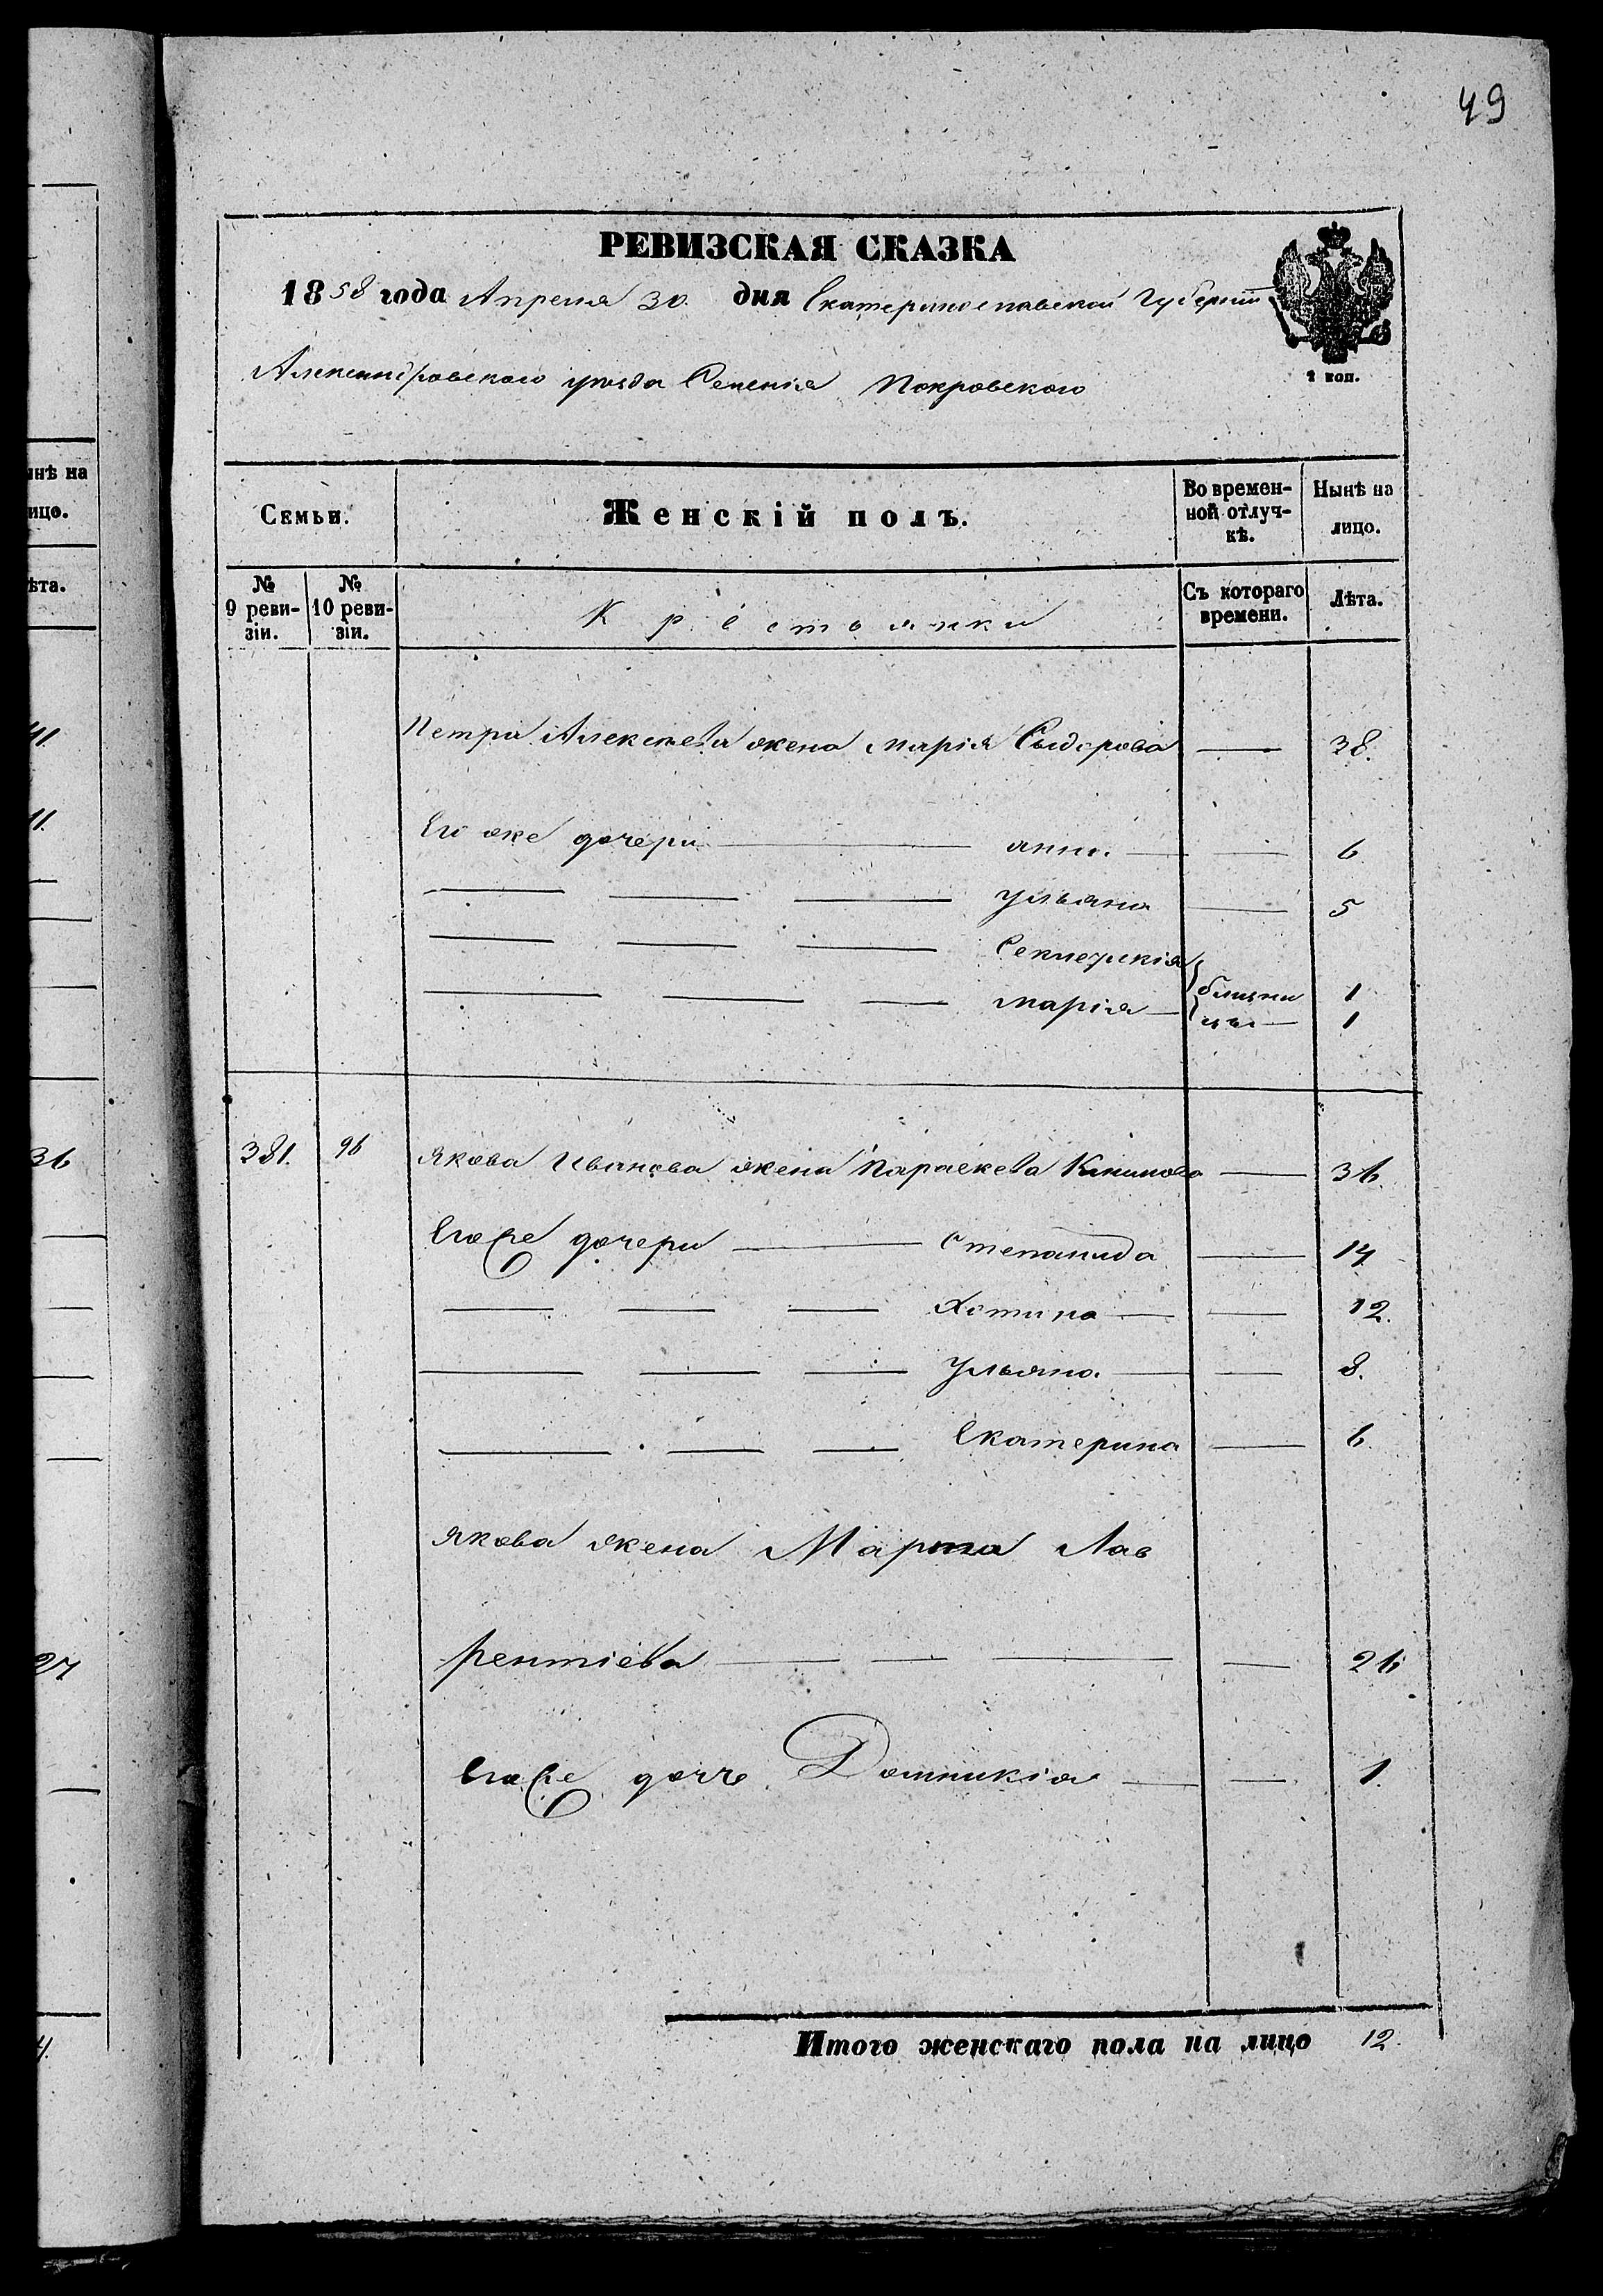 49
РЕВИЗСКАЯ СКАЗКА
1858 года Апреля 30 дня Екатеринославской Губернии
Александровского уезда Селения Покровского
1 коп.
Семьи.
Женскій полъ.
Во времен-
ной отлуч-
кѣ.
Нынѣ на
лицо.
№
9 реви-
зіи.
№
10 реви-
зіи.
Крестьянки
Съ котораго
времени.
Лѣта.
Петра Алексеева жена Марія Сыдорова — 38.
Его же дочери — анна — 6
— — — Ульяна — 5
— — — Секлетикія
— — — Марія — близни 1
цы — 1
381. 96 Якова Иванова жена Параскева — 36.
Егоже дочери — Степанида — 14
— — — Хотина — 12.
— — — Ульяна — 8.
— — — Екатерина — 6.
Якова жена Марта Лав
рентіева — 26
Егоже дочь Домникія — 1.
Итого женскаго пола на лицо 12.
ынѣ на
ицо.
ѣта.
41.
11.
36
27
4.